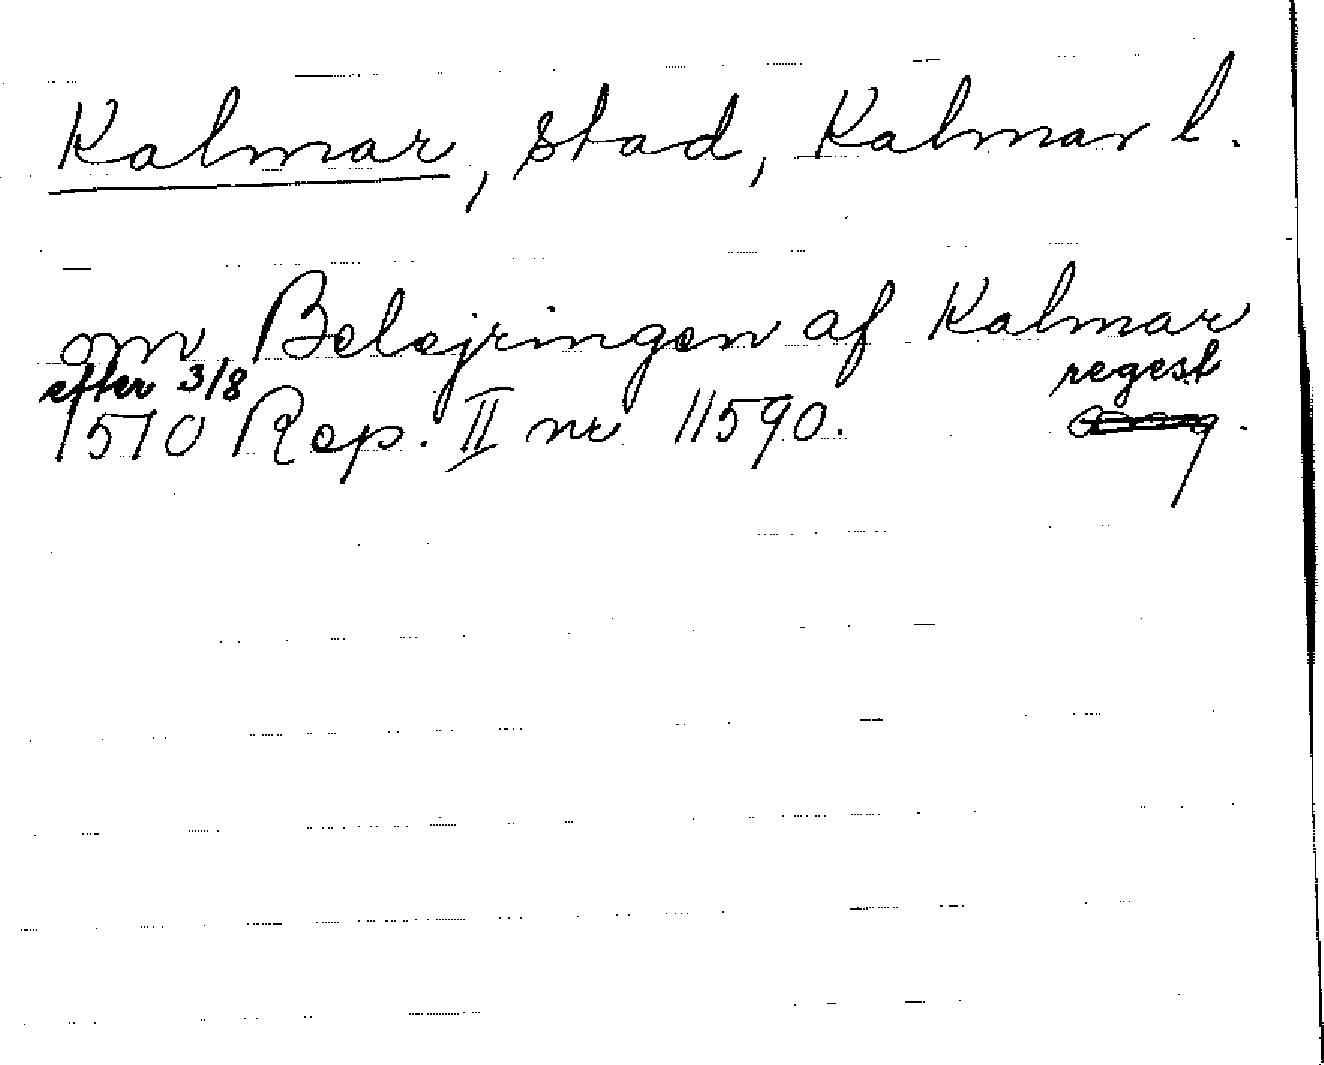 Kalmar, stad, Kalmar l.
om Belejringen af Kalmar
efter 3/8 regest
1510 Rep. II nr 11590.